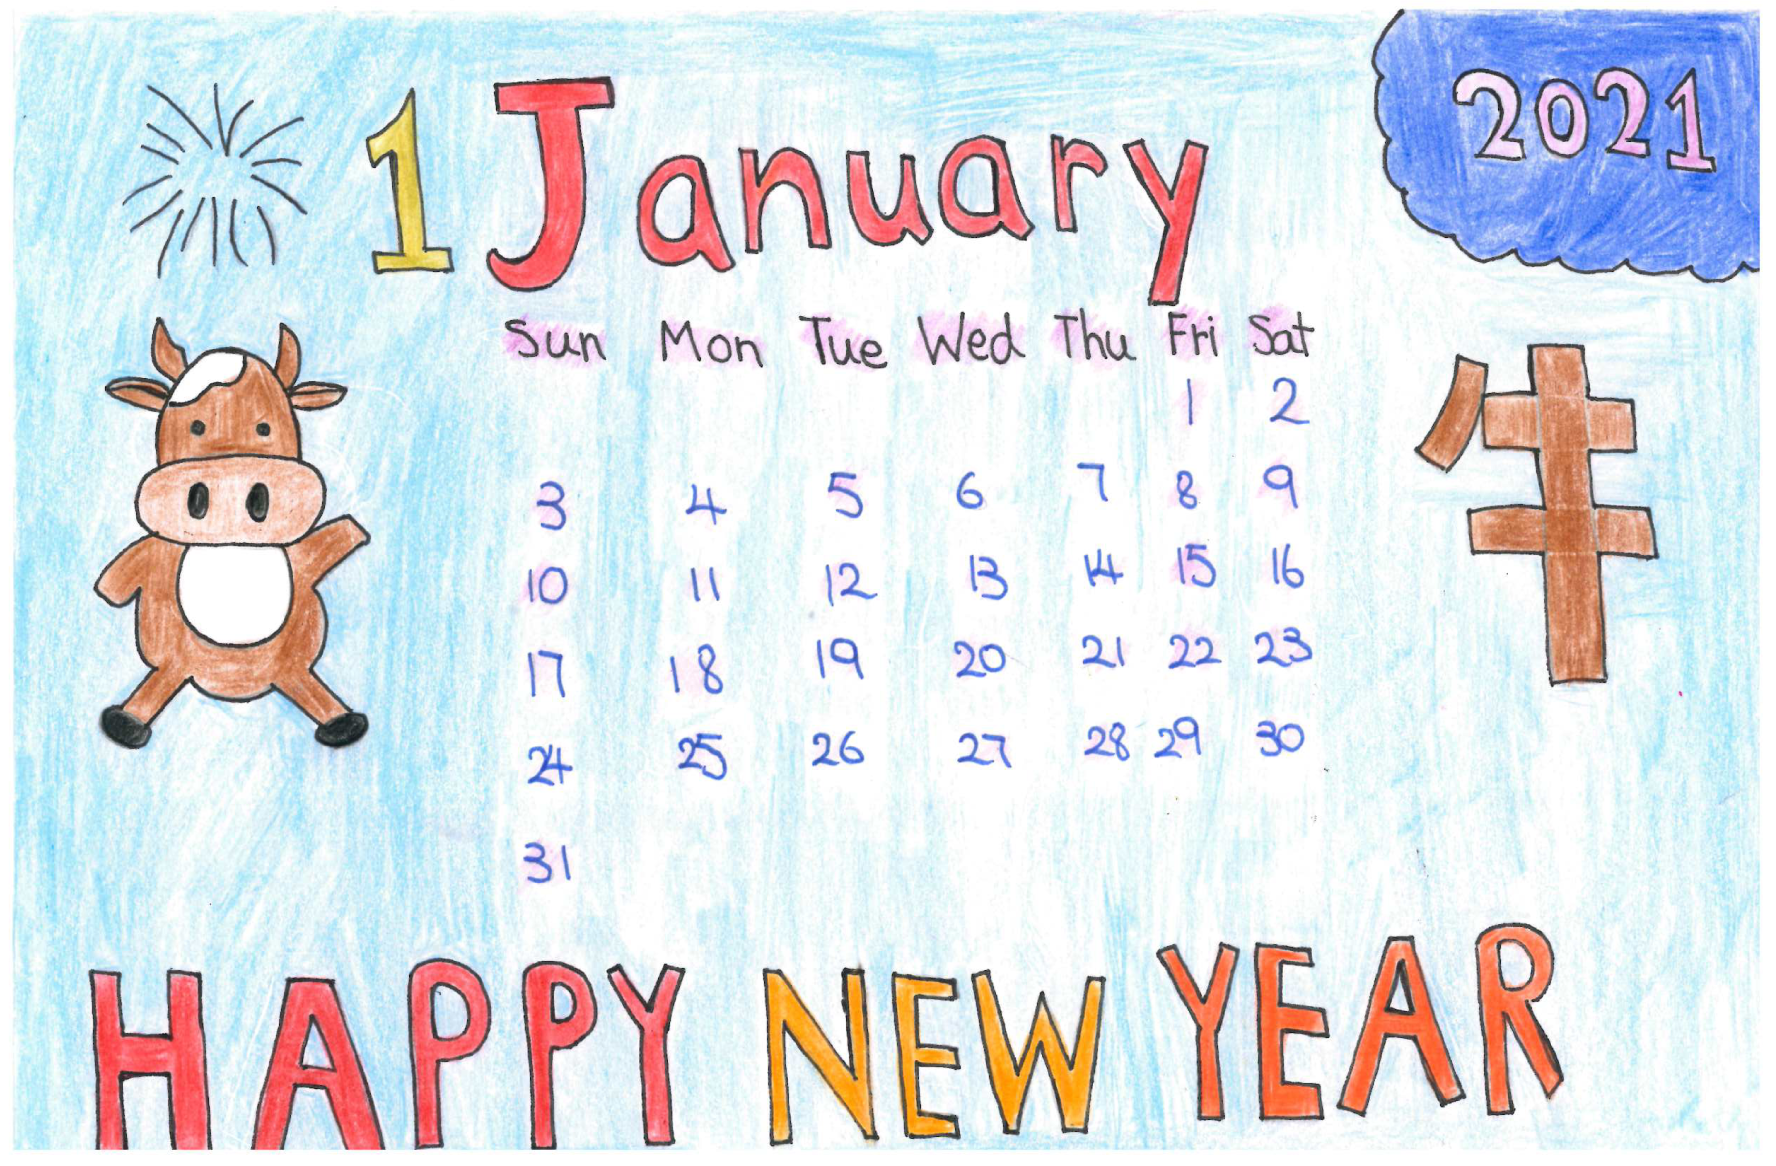 1 January
2021
Sun Mon Tue Wed Thu Fri Sat
1 2
3 4 5 6 7 8 9
10 11 12 13 14 15 16
17 18 19 20 21 22 23
24 25 26 27 28 29 30
31
牛
HAPPY NEW YEAR